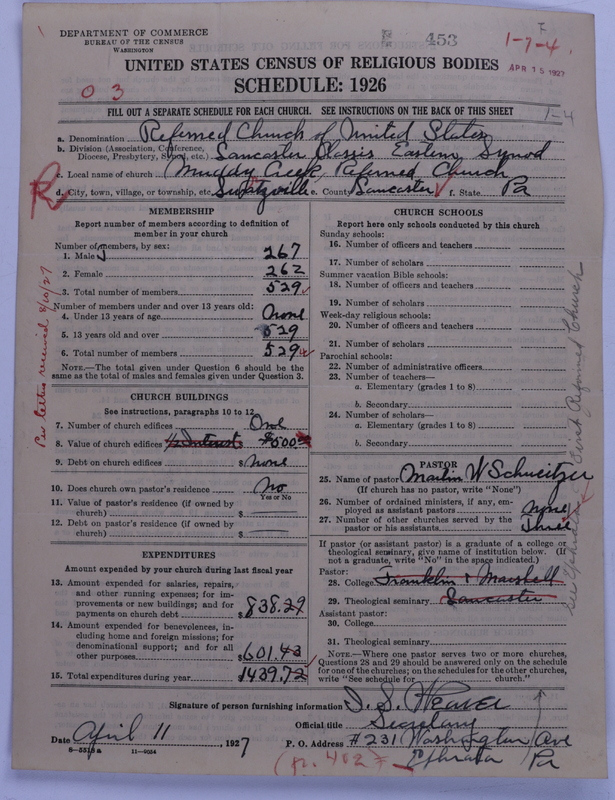 DEPARTMENT OF COMMERCE
BUREAU OF THE CENSUS
WASHINGTON
453
1-7-4
APR 15 1927
UNITED STATES CENSUS OF RELIGIOUS BODIES
SCHEDULE: 1926
0 3
FILL OUT A SEPARATE SCHEDULE FOR EACH CHURCH. SEE INSTRUCTIONS ON THE BACK OF THIS SHEET
1-4
a. Denomination Reformed Church of United States
b. Division (Association, Conference, Diocese, Presbytery, Synod, etc.) Lancaster Classis Eastern Synod
c. Local name of church Muddy Creek, Reformed Church
d. City, town, village, or township, etc. e. County Lancaster f. State Pa
R
MEMBERSHIP
Report number of members according to definition of member in your church
Number of members, by sex:
1. Male 267
2. Female 262
3. Total number of members 529
Number of members under and over 13 years old:
4. Under 13 years of age none
5. 13 years old and over 529
6. Total number of members 529
NOTE.—The total given under Question 6 should be same as the total of males and females given under Question 3.
Per letter received 8/20/27
CHURCH BUILDINGS
See instructions, paragraphs 10 to 12
7. Number of church edifices One
8. Value of church edifices 1/2 Interest
9. Debt on church edifices $ none
10. Does church own pastor's residence No
Yes or No
11. Value of pastor's residence (if owned by church) $
12. Debt on pastor's residence (if owned by church) $
EXPENDITURES
Amount expended by your church during last fiscal year
13. Amount expended for salaries, repairs, and other running expenses; for improvements or new buildings; and for payments on church debt $838.29
14. Amount expended for benevolences, including home and foreign missions; for denominational support; and for all other purposes $601.43
15. Total expenditures during year 1439.72
CHURCH SCHOOLS
Report here only schools conducted by this church
Sunday schools:
16. Number of officers and teachers
17. Number of scholars
Summer vacation Bible schools:
18. Number of officers and teachers
19. Number of scholars
Week-day religious schools:
20. Number of officers and teachers
21. Number of scholars
Parochial schools:
22. Number of administrative officers
23. Number of teachers—
a. Elementary (grades 1 to 8)
b. Secondary
24. Number of scholars—
a. Elementary (grades 1 to 8)
b. Secondary
PASTOR
25. Name of pastor Martin W Schweitzer
(If church has no pastor, write "None")
26. Number of ordained ministers, if any, employed as assistant pastors none
27. Number of other churches served by the pastor
If pastor (or assistant pastor) is a graduate of a college or theological seminary, give name of institution below. (If not a graduate, write "No" in the space indicated.)
Pastor:
28. College Franklin & Marshall
29. Theological seminary Lancaster
Assistant pastor:
30. College
31. Theological seminary
NOTE.—Where one pastor serves two or more churches, Questions 28 and 29 should be answered only on the schedule for one of the churches; on the schedules for the other churches, write "See schedule for church."
See Ephrata First Reformed Church
Signature of person furnishing information I. S. Weaver
Official title Secretary
Date April 11, 1927
P. O. Address #231 Washington Ave
Ephrata Pa
8-5518a 11-9054
(p. 402)